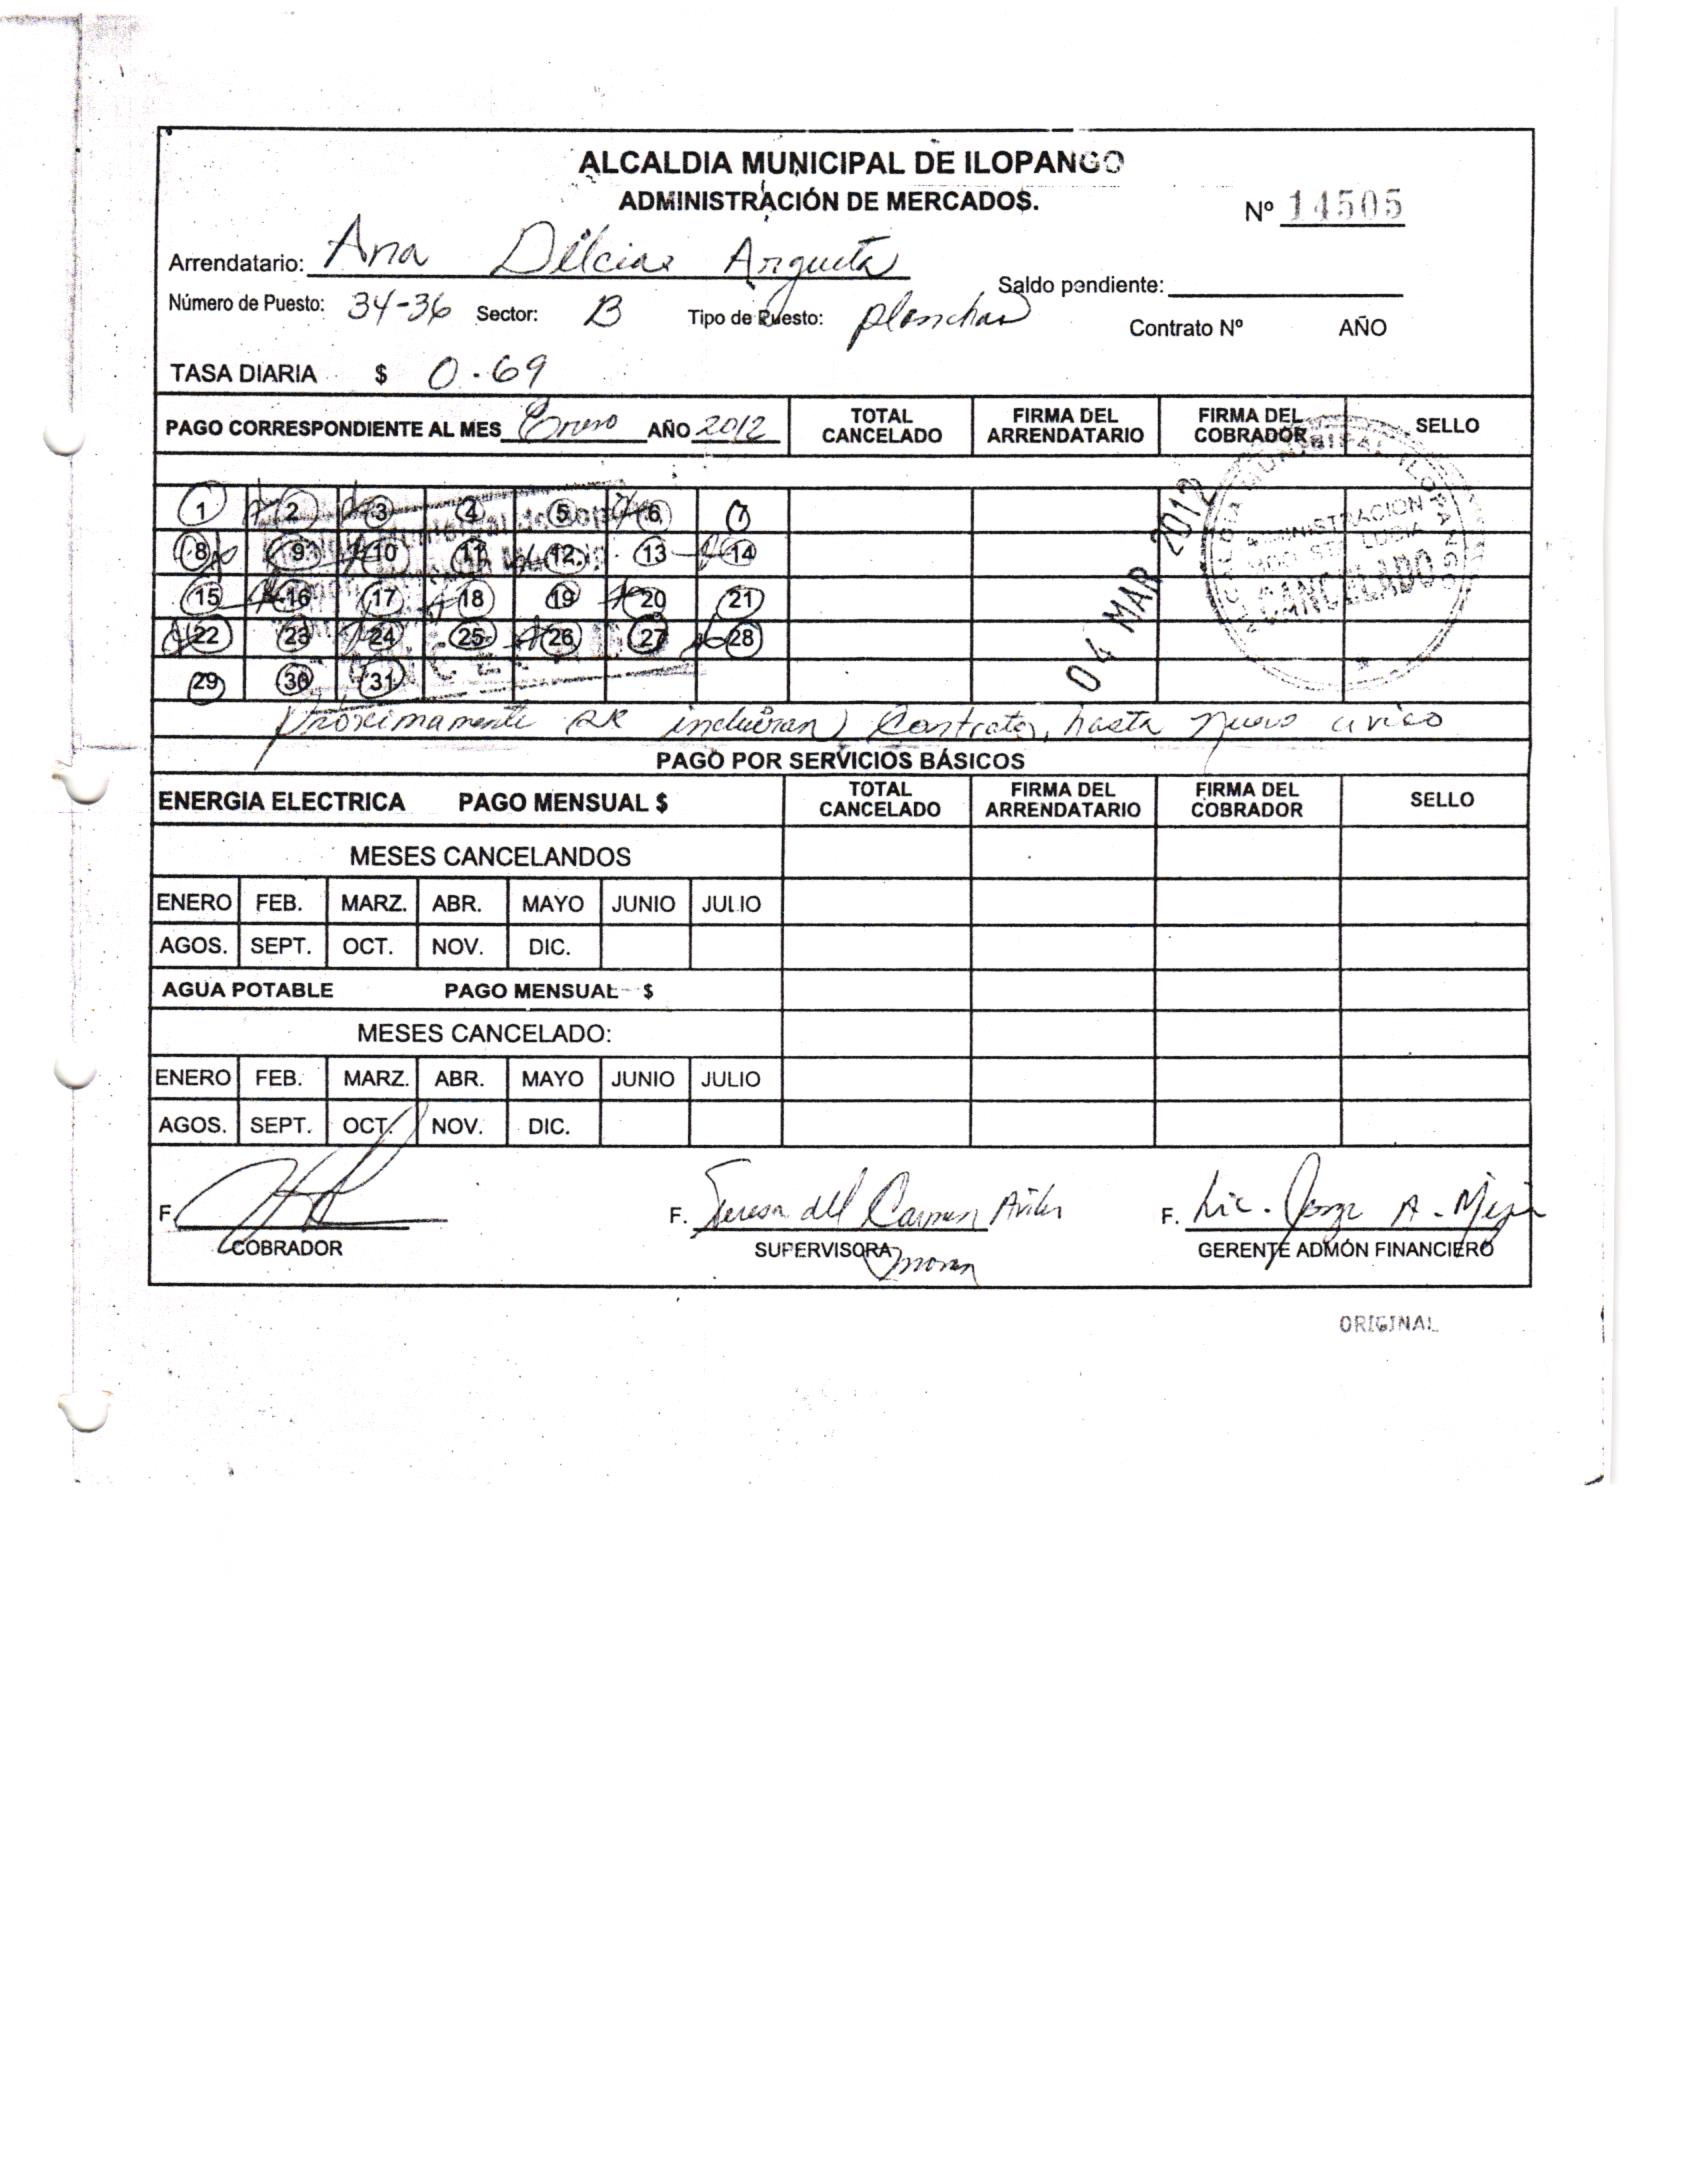 ALCALDIA MUNICIPAL DE ILOPANGO
ADMINISTRACIÓN DE MERCADOS.
Nº 14505
Arrendatario: Ana Delcias Argueta
Saldo pendiente:
Número de Puesto: 34-36 Sector: B Tipo de Puesto: planchas Contrato Nº AÑO
TASA DIARIA $ 0.69
PAGO CORRESPONDIENTE AL MES Enero AÑO 2012 TOTAL CANCELADO FIRMA DEL ARRENDATARIO FIRMA DEL COBRADOR SELLO
1 2 3 4 5 6 7
8 9 10 11 12 13 14
15 16 17 18 19 20 21
22 23 24 25 26 27 28
29 30 31
04 MAR 2012
ADMINISTRACION
CANCELADO
Próximamente se incluiran Contrato, hasta nuevo aviso
PAGO POR SERVICIOS BÁSICOS
ENERGIA ELECTRICA PAGO MENSUAL $ TOTAL CANCELADO FIRMA DEL ARRENDATARIO FIRMA DEL COBRADOR SELLO
MESES CANCELANDOS
ENERO FEB. MARZ. ABR. MAYO JUNIO JULIO
AGOS. SEPT. OCT. NOV. DIC.
AGUA POTABLE PAGO MENSUAL $
MESES CANCELADO:
ENERO FEB. MARZ. ABR. MAYO JUNIO JULIO
AGOS. SEPT. OCT. NOV. DIC.
F. F. Teresa del Carmen Aviles F. Lic. Jorge A. Mejia
COBRADOR SUPERVISORA GERENTE ADMÓN FINANCIERO
ORIGINAL